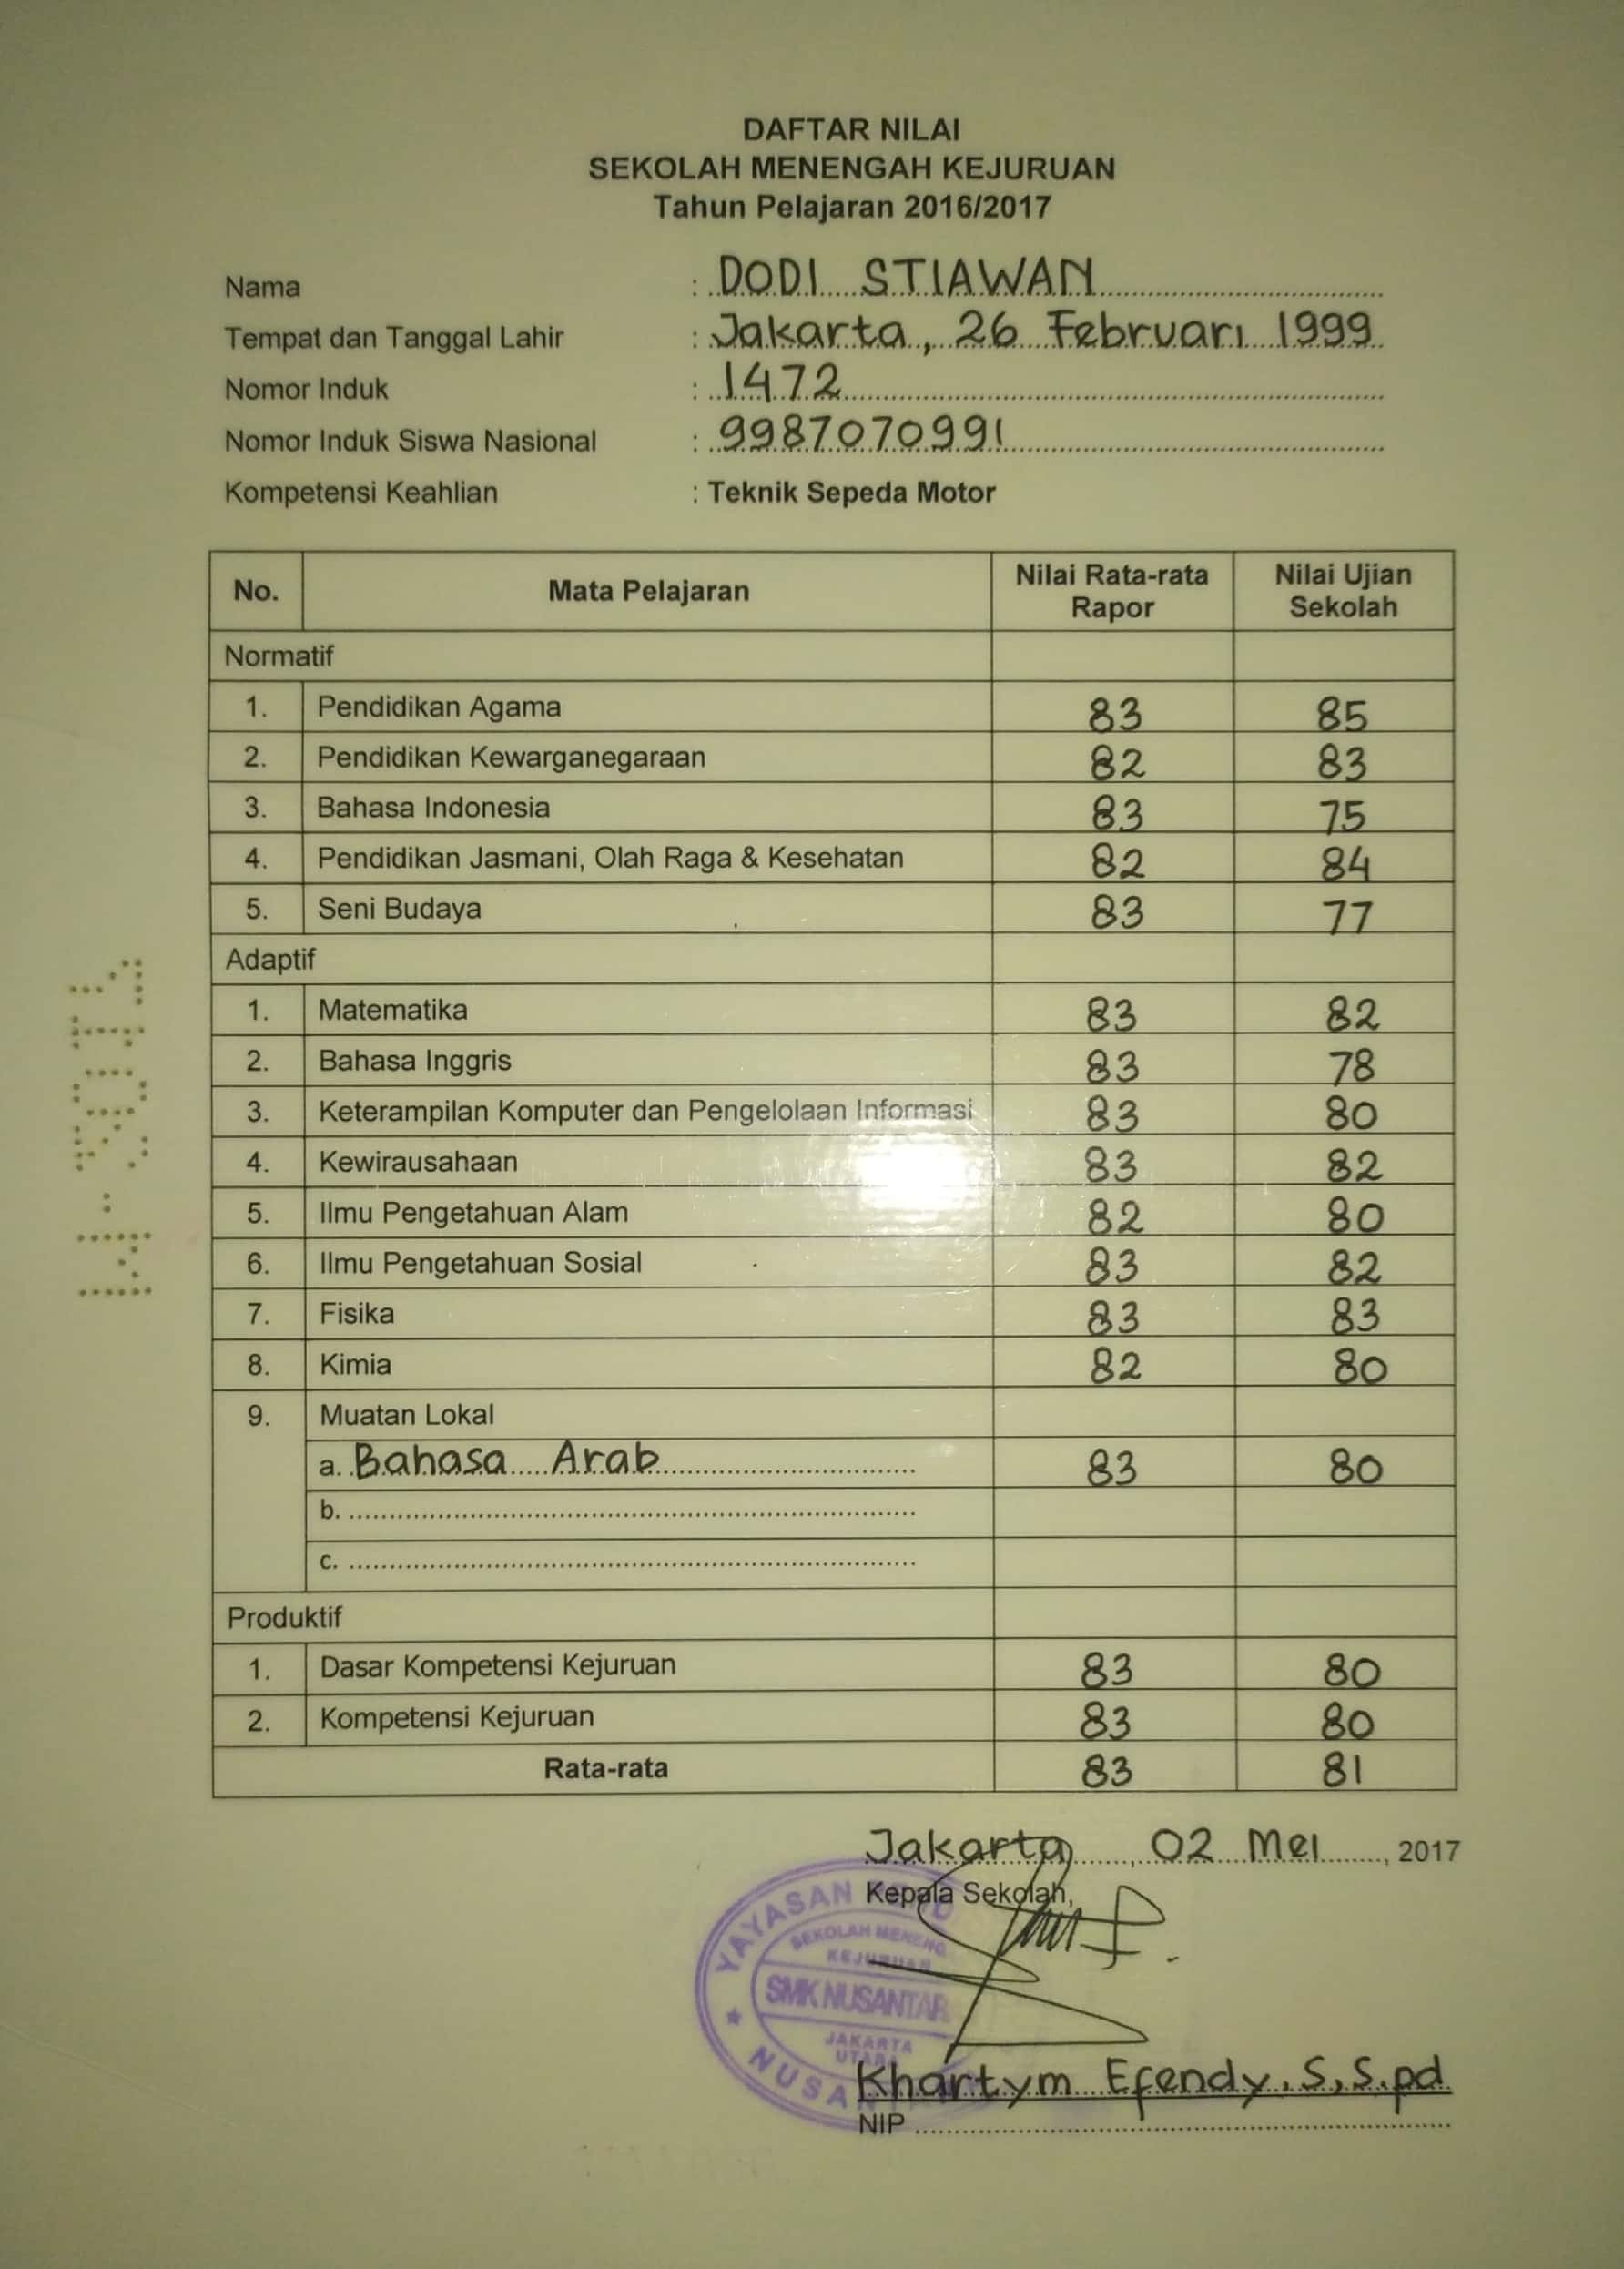 DAFTAR NILAI
SEKOLAH MENENGAH KEJURUAN
Tahun Pelajaran 2016/2017
Nama : DODI STIAWAN
Tempat dan Tanggal Lahir : Jakarta, 26 Februari 1999
Nomor Induk : 1472
Nomor Induk Siswa Nasional : 9987070991
Kompetensi Keahlian : Teknik Sepeda Motor
No. Mata Pelajaran Nilai Rata-rata Rapor Nilai Ujian Sekolah
Normatif
1. Pendidikan Agama 83 85
2. Pendidikan Kewarganegaraan 82 83
3. Bahasa Indonesia 83 75
4. Pendidikan Jasmani, Olah Raga & Kesehatan 82 84
5. Seni Budaya 83 77
Adaptif
1. Matematika 83 82
2. Bahasa Inggris 83 78
3. Keterampilan Komputer dan Pengelolaan Informasi 83 80
4. Kewirausahaan 83 82
5. Ilmu Pengetahuan Alam 82 80
6. Ilmu Pengetahuan Sosial 83 82
7. Fisika 83 83
8. Kimia 82 80
9. Muatan Lokal
a. Bahasa Arab 83 80
b.
c.
Produktif
1. Dasar Kompetensi Kejuruan 83 80
2. Kompetensi Kejuruan 83 80
Rata-rata 83 81
Jakarta, 02 Mei, 2017
Kepala Sekolah,
YAYASAN
SEKOLAH MENENG
KEJURUAN
SMK NUSANTAR
JAKARTA
UTARA
NUSA
Khartym Efendy, S, S.pd
NIP